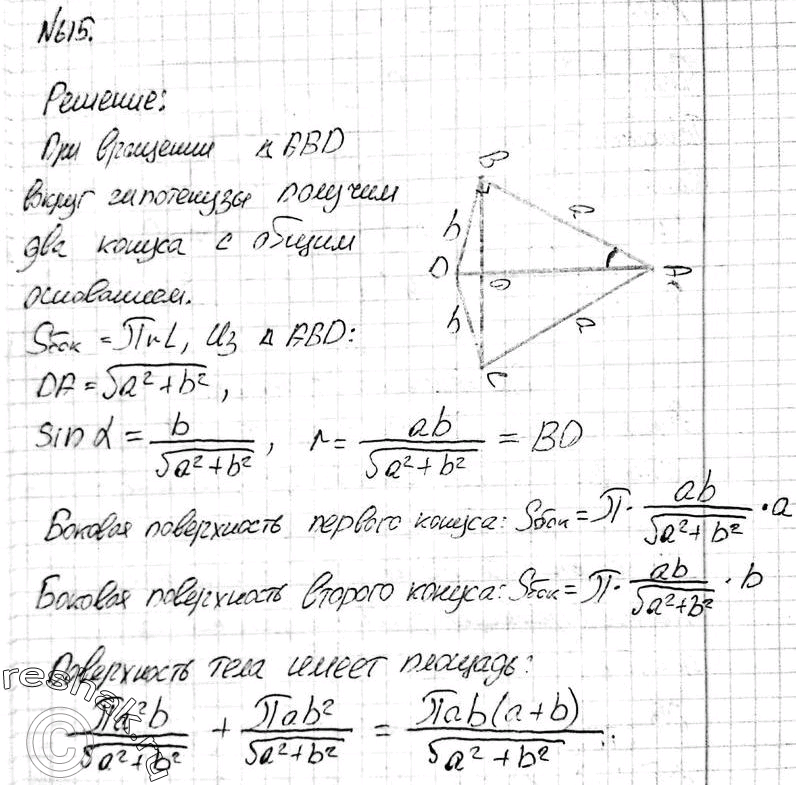 №615.
Решение:
При вращении △ABD
вокруг гипотенузы получим
два конуса с общим
основанием.
Sбок = πrL, из △ABD:
DA = √(a² + b²),
sin α = b/√(a² + b²), r = ab/√(a² + b²) = BO
Боковая поверхность первого конуса: Sбок = π · ab/√(a² + b²) · a
Боковая поверхность второго конуса: Sбок = π · ab/√(a² + b²) · b
Поверхность тела имеет площадь:
πa²b/√(a² + b²) + πab²/√(a² + b²) = πab(a + b)/√(a² + b²).
B
a
b
D
O
A
b
a
C
reshak.ru
©